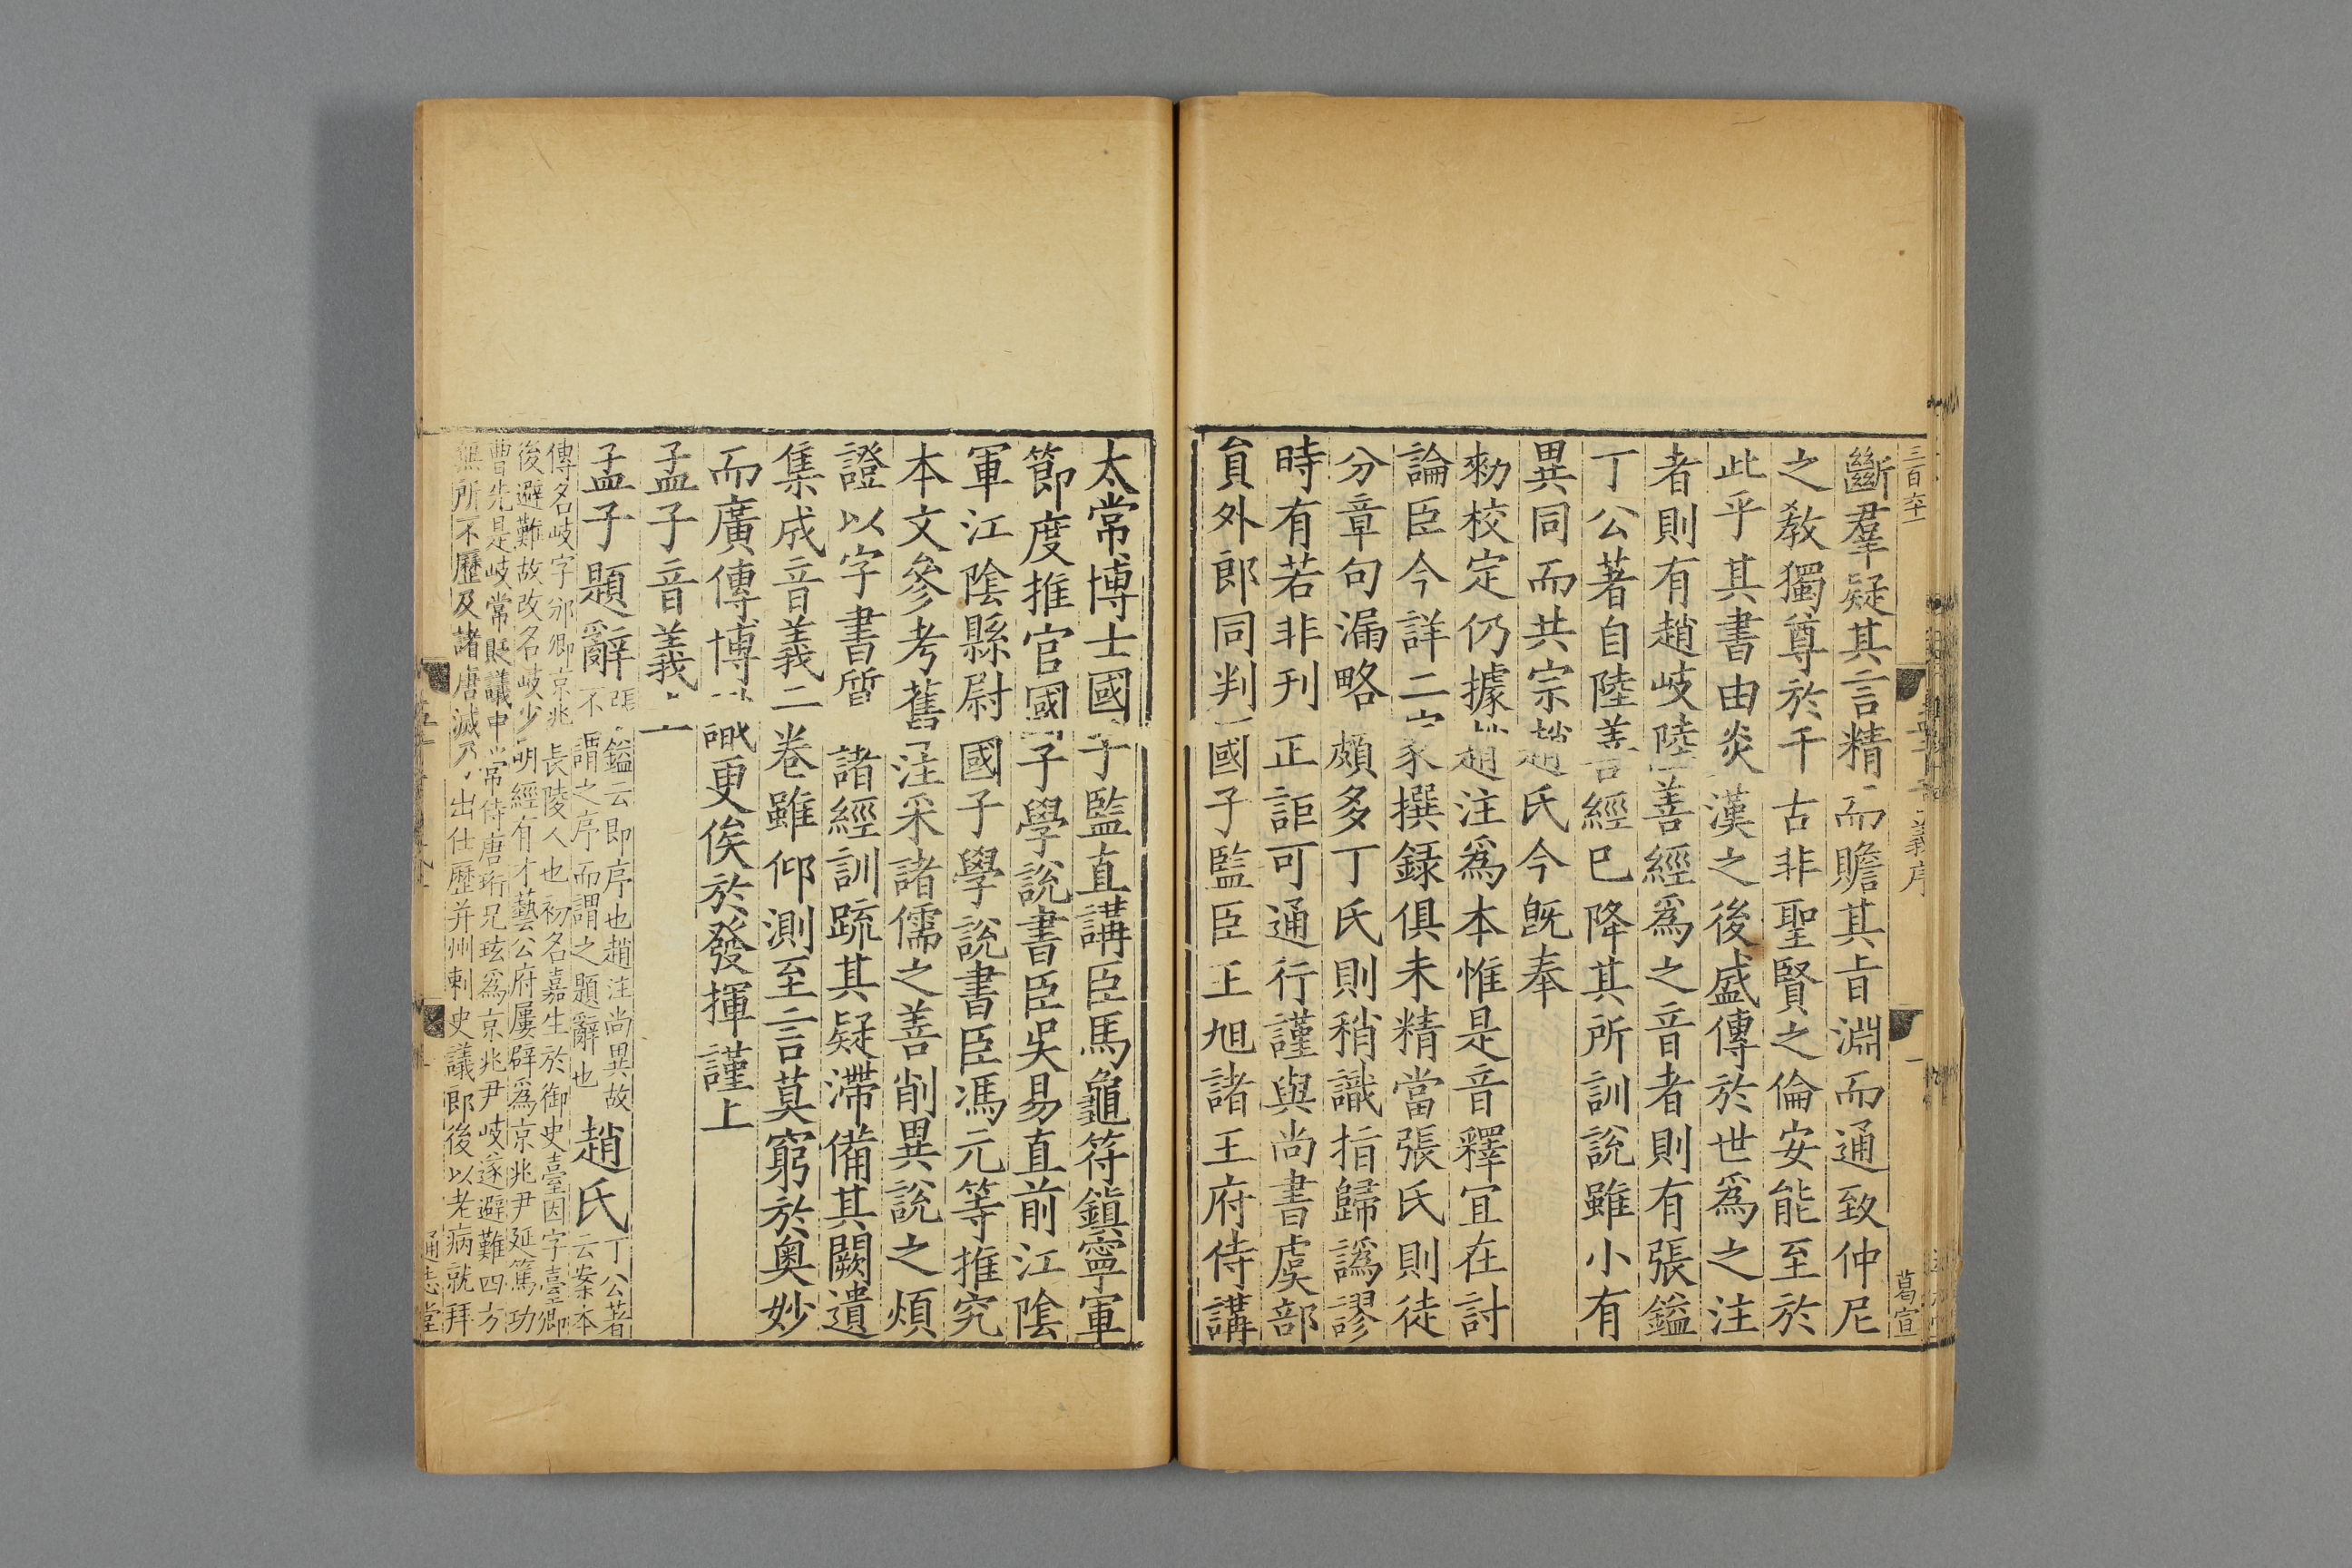 三百六十一
義序
一
葛宣
斷羣疑其言精而贍其旨淵而通致仲尼
之教獨尊於千古非聖賢之倫安能至於
此乎其書由炎漢之後盛傳於世爲之注
者則有趙岐陸善經爲之音者則有張鎰
丁公著自陸善經已降其所訓說雖小有
異同而共宗趙氏今旣奉
勑校定仍據趙注爲本惟是音釋宜在討
論臣今詳二家撰録俱未精當張氏則徒
分章句漏略頗多丁氏則稍識指歸譌謬
時有若非刊正詎可通行謹與尚書虞部
員外郎同判國子監臣王旭諸王府侍講
太常博士國子監直講臣馬龜符鎮寧軍
節度推官國子學說書臣吳易直前江陰
軍江陰縣尉國子學說書臣馮元等推究
本文參考舊注采諸儒之善削異說之煩
證以字書質諸經訓疏其疑滯備其闕遺
集成音義二卷雖仰測至言莫窮於奧妙
而廣傳博識更俟於發揮謹上
孟子音義上
孟子題辭張鎰云即序也趙注尚異故不謂之序而謂之題辭也趙氏丁公著云案本
傳名岐字邠卿京兆長陵人也初名嘉生於御史臺因字臺卿
後避難故改名岐少明經有才藝公府屢辟爲京兆尹延篤功
曹先是岐常貶議中常侍唐珩兄玹爲京兆尹岐遂避難四方
無所不歷及諸唐滅乃出仕歷并州刺史議郎後以老病就拜
通志堂